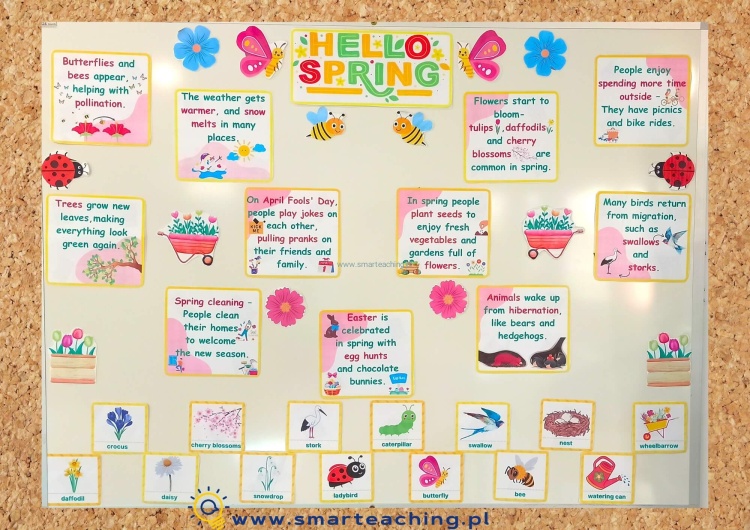 HELLO
SPRING
Butterflies and
bees appear,
helping with
pollination.
The weather gets
warmer, and snow
melts in many
places.
Flowers start to
bloom-
tulips, daffodils
and cherry
blossoms are
common in spring.
People enjoy
spending more time
outside -
They have picnics
and bike rides.
Trees grow new
leaves, making
everything look
green again.
On April Fools' Day,
people play jokes on
each other,
pulling pranks on
their friends and
family.
KICK
ME
In spring people
plant seeds to
enjoy fresh
vegetables and
gardens full of
flowers.
Many birds return
from migration,
such as
swallows
and
storks.
Spring cleaning -
People clean
their homes
to welcome
the new season.
Easter is
celebrated
in spring with
egg hunts
and chocolate
bunnies.
Animals wake up
from hibernation,
like bears and
hedgehogs.
crocus
cherry blossoms
stork
caterpillar
swallow
nest
wheelbarrow
daffodil
daisy
snowdrop
ladybird
butterfly
bee
watering can
www.smarteaching.pl